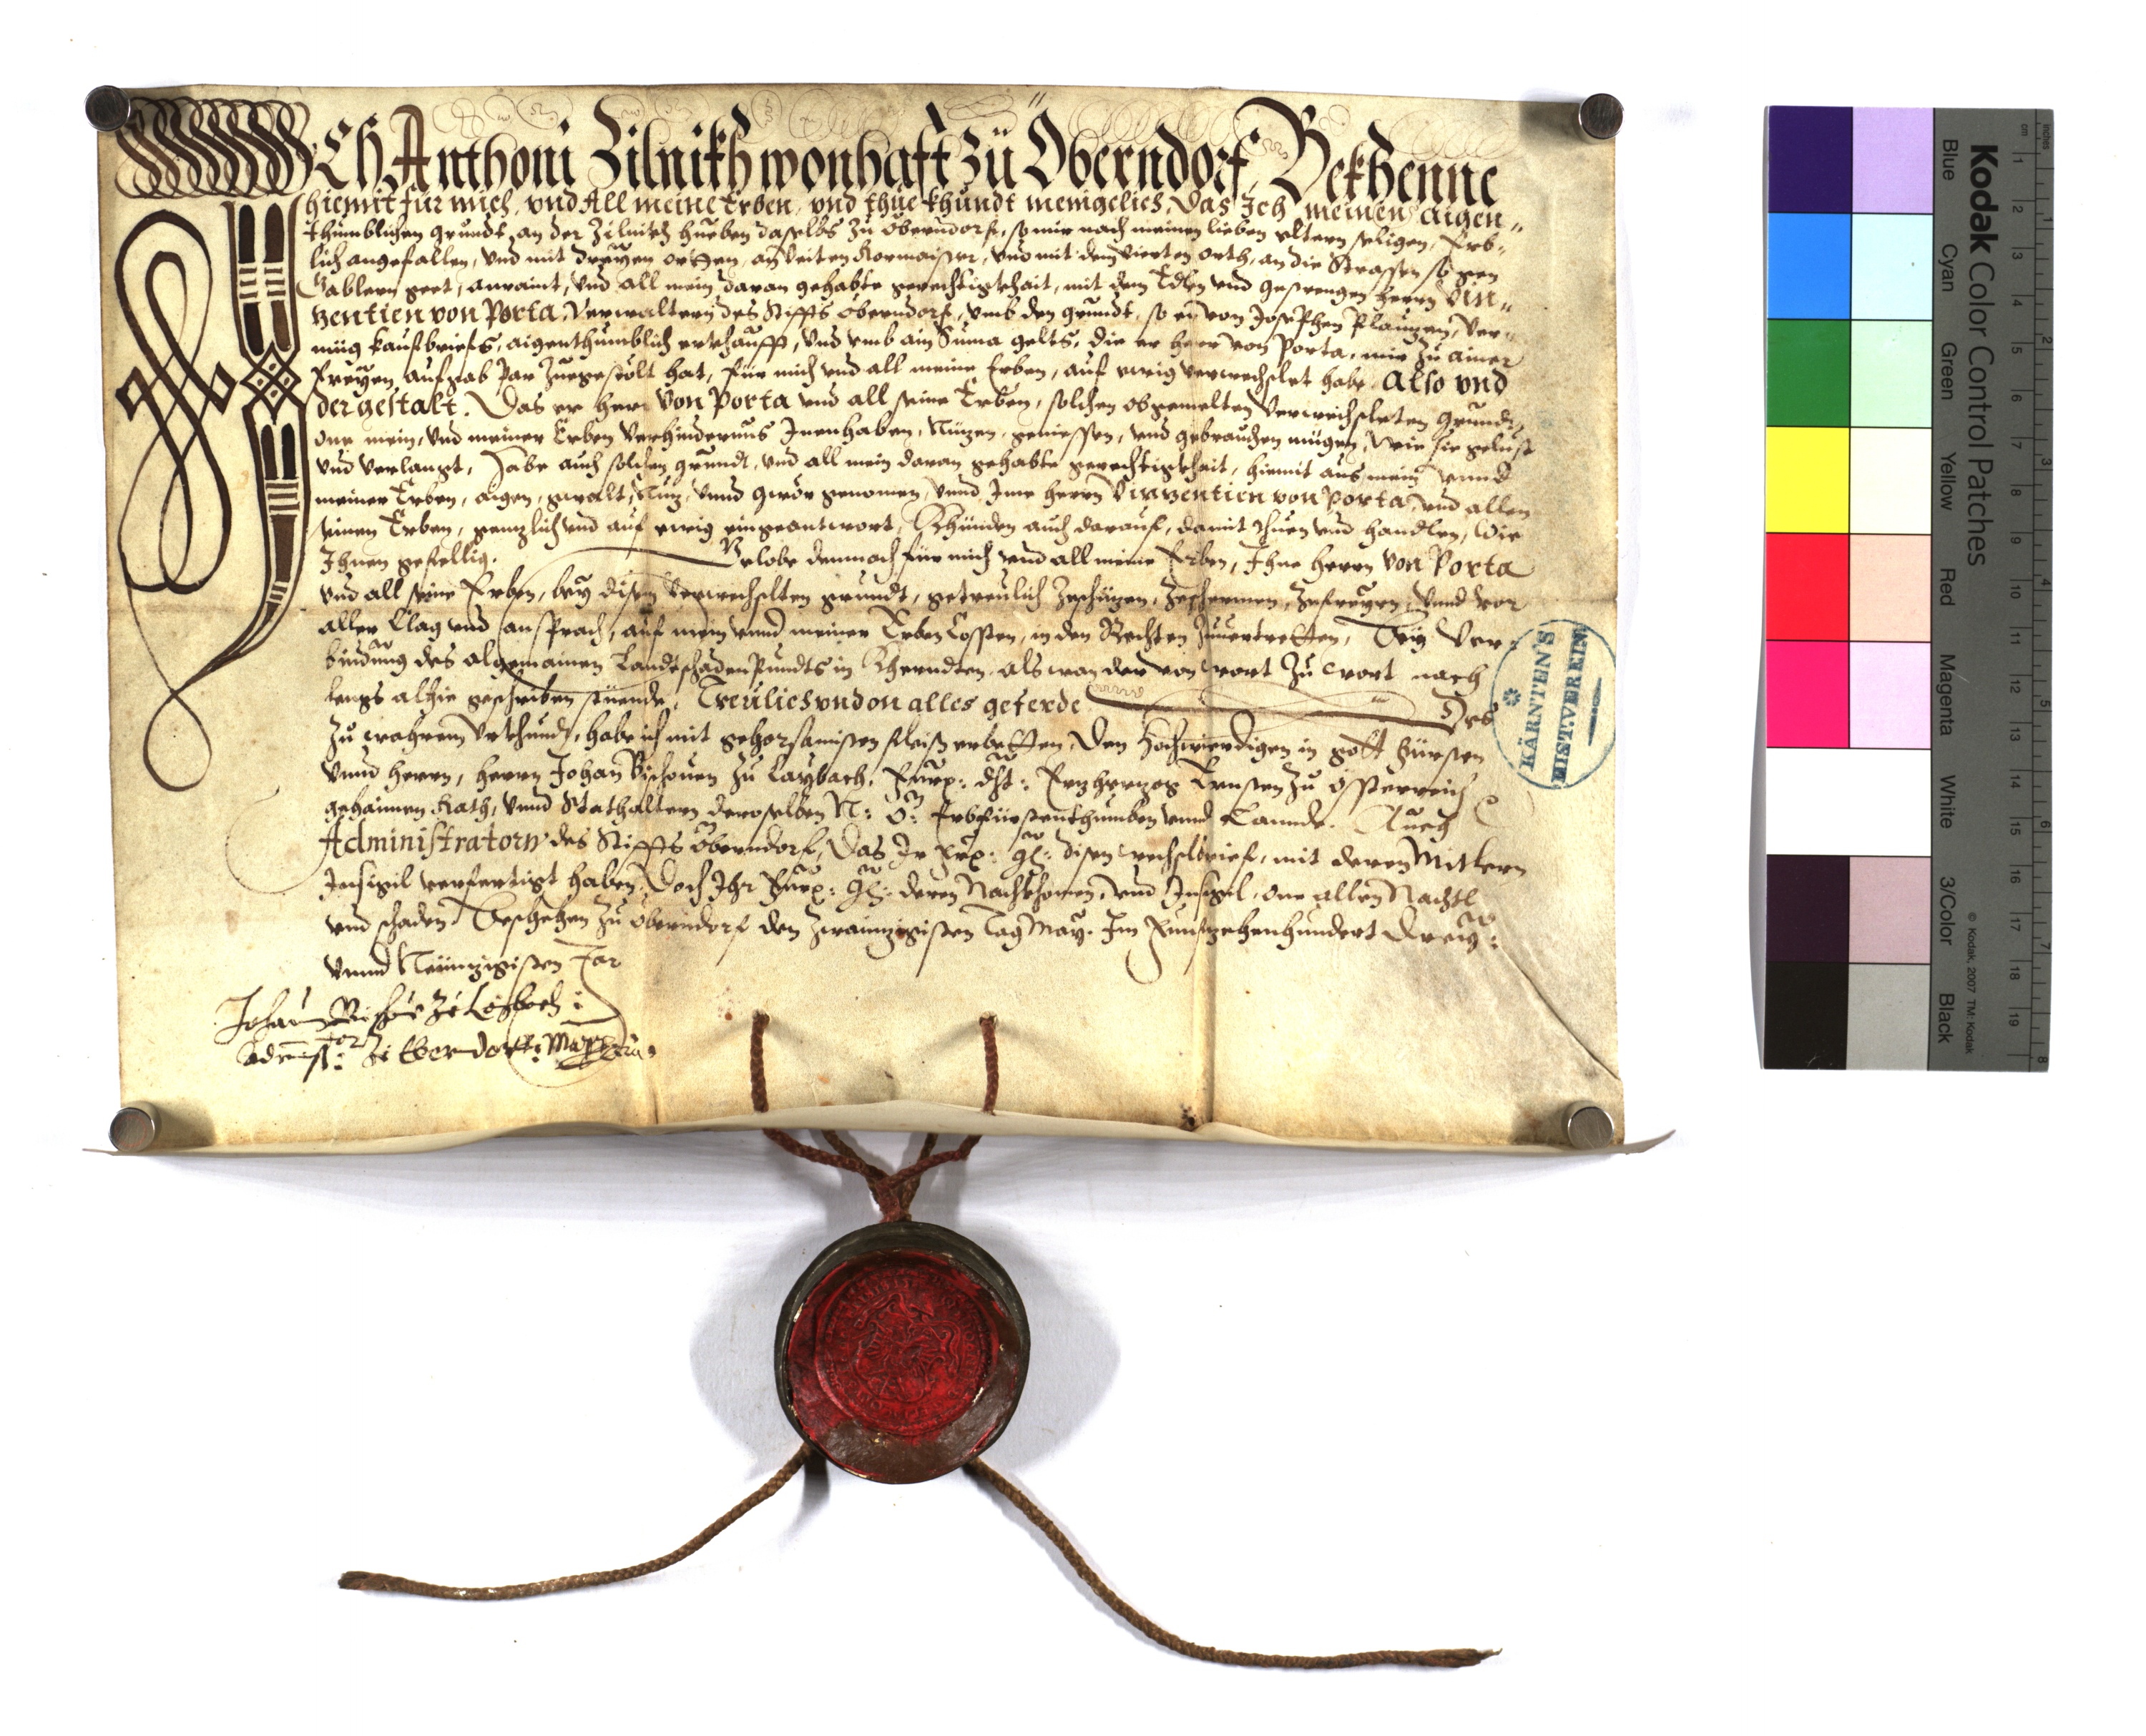 ICh Anthoni Zilnikh wonhaft zü Öberndorf Bekhenne
hiemit für mich, vnd All meine Erben, vnd thue khundt menigelich, Das Ich meinen aigen„
thumblichen grundt, an der Zilnikh hueben daselbs zu Oberndorf, so mir nach meinen lieben eltern seligen, Erb„
lich angefallen, vnd mit dreyen ortten, an Veiten Kormaister, vnd mit dem vierten orth, an die Strassen so gen
Gablern geet, anraint, vnd all mein daran gehabte gerechtigkhait, mit dem Edlen vnd gestrengen herrn Vin„
zentien von Porta, Verwaltern des Stiffts Oberndorf, vmb den grundt, so er von Josephen Plauzen, ver„
müg kaufbriefs, aigenthumblich erkhaufft, vnd vmb ain Suma gelts, die er herr von Porta, mir zu ainer
freyen aufgab par zuegestölt hat, für mich vnd all meine Erben, auf ewig verwechslet habe. Also vnd
dergestalt. Das er herr von Porta vnd all seine Erben, solchen obgemelten verwechsleten grundt,
one mein, vnd meiner Erben verhindernus Innenhaben, Nüzen, geniessen, vnd gebrauchen mügen, wie sie gelust
vnd verlangt, Habe auch solchen grundt, vnd all mein daran gehabte gerechtigkhait, hiemit aus mein vnnd
meiner Erben, aigen, gwalt, Nuz, vnnd gwör genomen, vnnd Ime herrn Vinzentien von Porta, vnd allen
seinen Erben, genzlich vnd auf ewig eingeantwort, Khünden auch darauf, damit thuen vnd handlen, wie
Ihnen gefellig. Gelobe demnach für mich vnd all meine Erben, Ihne herrn von Porta
vnd all seine Erben, bey disem verwechslten grundt, getreulich zeschüzen, zeschermen, zefreyen, vnnd vor
aller Clag vnd ansprach, auf mein vnnd meiner Erben Cossten, in den Rechten zuuertretten, Bey Ver„
bindung des algemainen Landtschadenpundts in Khernndten, als wan der von wort zu wort nach
lengs alhie geschriben stüende, Treülich vnd on alles geferde Des
zu wahrem Vrkhundt, habe ich mit gehorsamisten fleiß erbetten, Den Hochwierdigen in gott Fürsten
vnnd herrn, herrn Johan Bischouen zu Laybach, Fürr: Dht: Erzherzog Ernsten zu Össterreich
gehaimen Rath, vnnd Stathaltern deroselben N: Ö: Erbfürstenthumben vnnd Lannde. Auch
Administratorn des Stiffts Öberndorf, Das Ir Frr: Gl: disen wechslbrief, mit deren Mitlern
Insigil verfertigt haben, Doch Ihr Fürr: Gl: deren Nachkhomen, vnd Insigel, one allen Nachtl
vnd schaden Beschehen zu Oberndorf den zwainzigisten Tag May. Im Funfzehenhundert Drey:
vnnd Neünzigisten Jar
Johann Bischoue zu Laybach :
Administ:tor zu Eberndorff: Mpp
KÄRNTEN'S
HIST. VEREIN
Kodak Color Control Patches
Blue Cyan Green Yellow Red Magenta White 3/Color Black
© Kodak, 2007 TM: Kodak
inches 1 2 3 4 5 6 7 8
cm 1 2 3 4 5 6 7 8 9 10 11 12 13 14 15 16 17 18 19